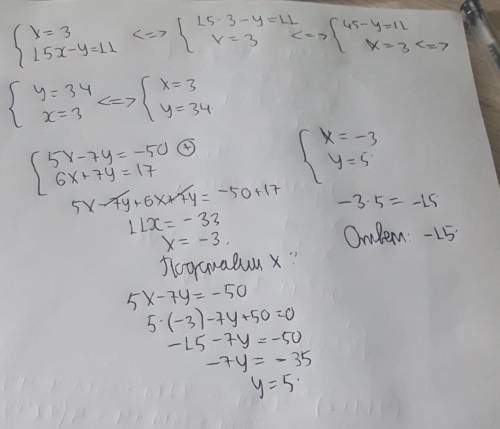 { x=3 <=> { 15·3-y=11 <=> { 45-y=11
15x-y=11 x=3 x=3 <=>
{ y=34 <=> { x=3
x=3 y=34
{ 5x-7y=-50 ⊕
6x+7y=17
5x-7y+6x+7y=-50+17
11x=-33
x=-3.
Подставим x:
5x-7y=-50
5·(-3)-7y+50=0
-15-7y=-50
-7y=-35
y=5.
{ x=-3
y=5.
-3·5=-15
Ответ: -15.